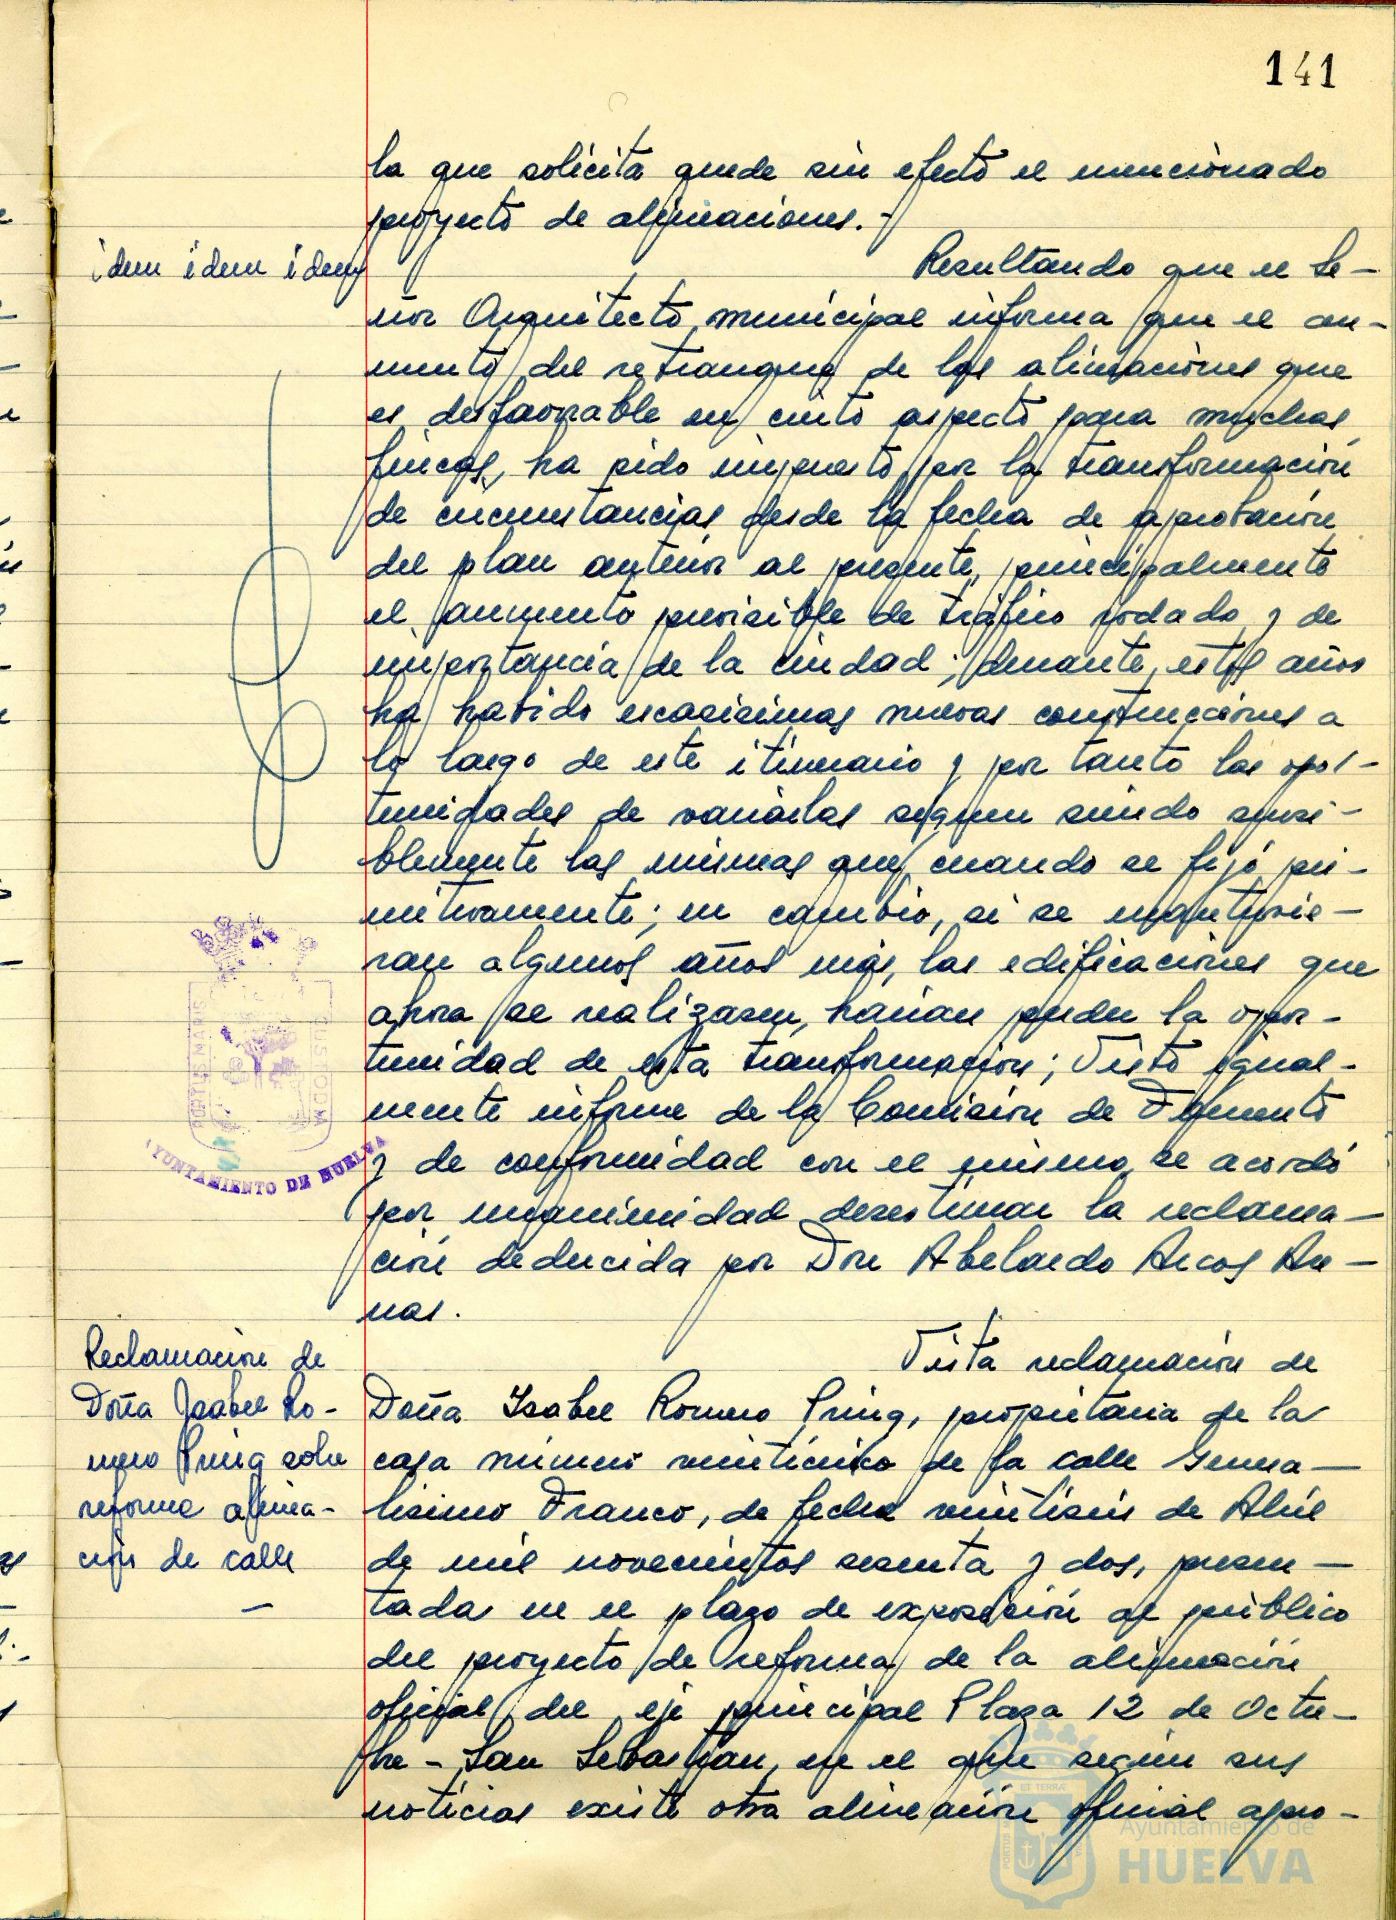 141
la que solicita quede sin efecto el mencionado
proyecto de alineaciones.-
idem idem idem
Resultando que el Se-
ñor Arquitecto municipal informa que el au-
mento del retranqueo de las alineaciones que
es desfavorable en cierto aspecto para muchas
fincas, ha sido impuesto por la transformación
de circunstancias desde la fecha de aprobación
del plan anterior al presente, principalmente
el aumento previsible de tráfico rodado y de
importancia de la ciudad; durante estos años
ha habido escasisimas nuevas construcciones a
lo largo de este itinerario y por tanto las opor-
tunidades de variarlas siguen siendo sensi-
blemente las mismas que cuando se fijó pri-
mitivamente; en cambio, si se mantuvie-
ran algunos años más, las edificaciones que
ahora se realizasen, harian perder la opor-
tunidad de esta transformación; Visto igual-
mente informe de la Comisión de Fomento
y de conformidad con el mismo, se acordó
por unanimidad desestimar la reclama-
ción deducida por Don Abelardo Arcos Are-
nas.
PORTUS MARIS
CUSTODIA
AYUNTAMIENTO DE HUELVA
Reclamación de
Doña Isabel Ro-
mero Puig sobre
reforma alinea-
ción de calle
Vista reclamación de
Doña Isabel Romero Puig, propietaria de la
casa número veinticinco de la calle Genera-
lisimo Franco, de fecha veintiseis de Abril
de mil novecientos sesenta y dos, presen-
tadas en el plazo de exposición al público
del proyecto de reforma de la alineación
oficial del eje principal Plaza 12 de Octu-
bre - San Sebastian, en el que según sus
noticias existe otra alineación oficial apro-
Ayuntamiento de
HUELVA